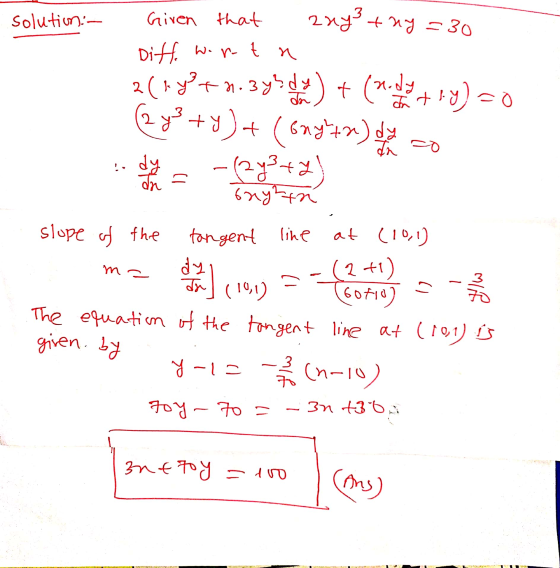 Solution:- Given that 2xy³ + xy = 30
Diff. w. r. t x
2(1·y³ + x·3y² dy/dx) + (x·dy/dx + 1·y) = 0
(2y³ + y) + (6xy² + x) dy/dx = 0
∴ dy/dx = -(2y³ + y) / (6xy² + x)
slope of the tangent line at (10,1)
m = dy/dx](10,1) = -(2+1) / (60+10) = -3/70
The equation of the tangent line at (10,1) is
given. by
y - 1 = -3/70 (x - 10)
70y - 70 = -3x + 30
3x + 70y = 100 (Ans)